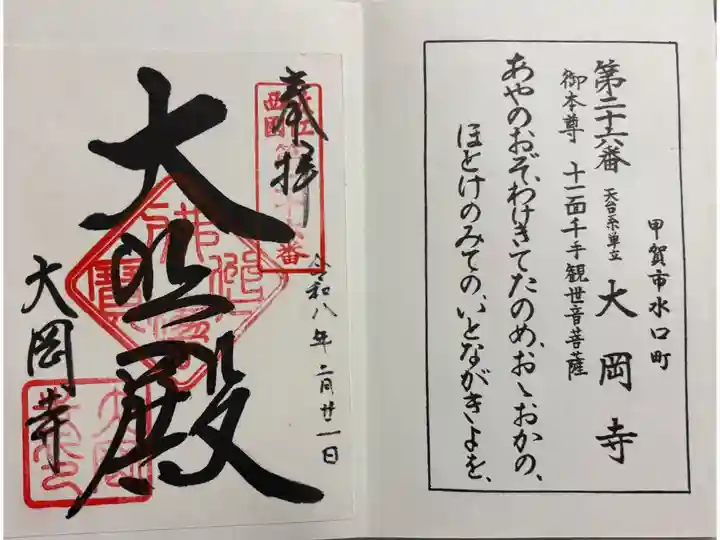 甲賀市水口町
第二十六番 天台系単立 大岡寺
御本尊 十一面千手観世音菩薩
あやのおぞ、わけきてたのめ、おゝおかの、
ほとけのみての、いとながきよを、
奉拝
令和八年二月廿一日
大悲殿
大岡寺